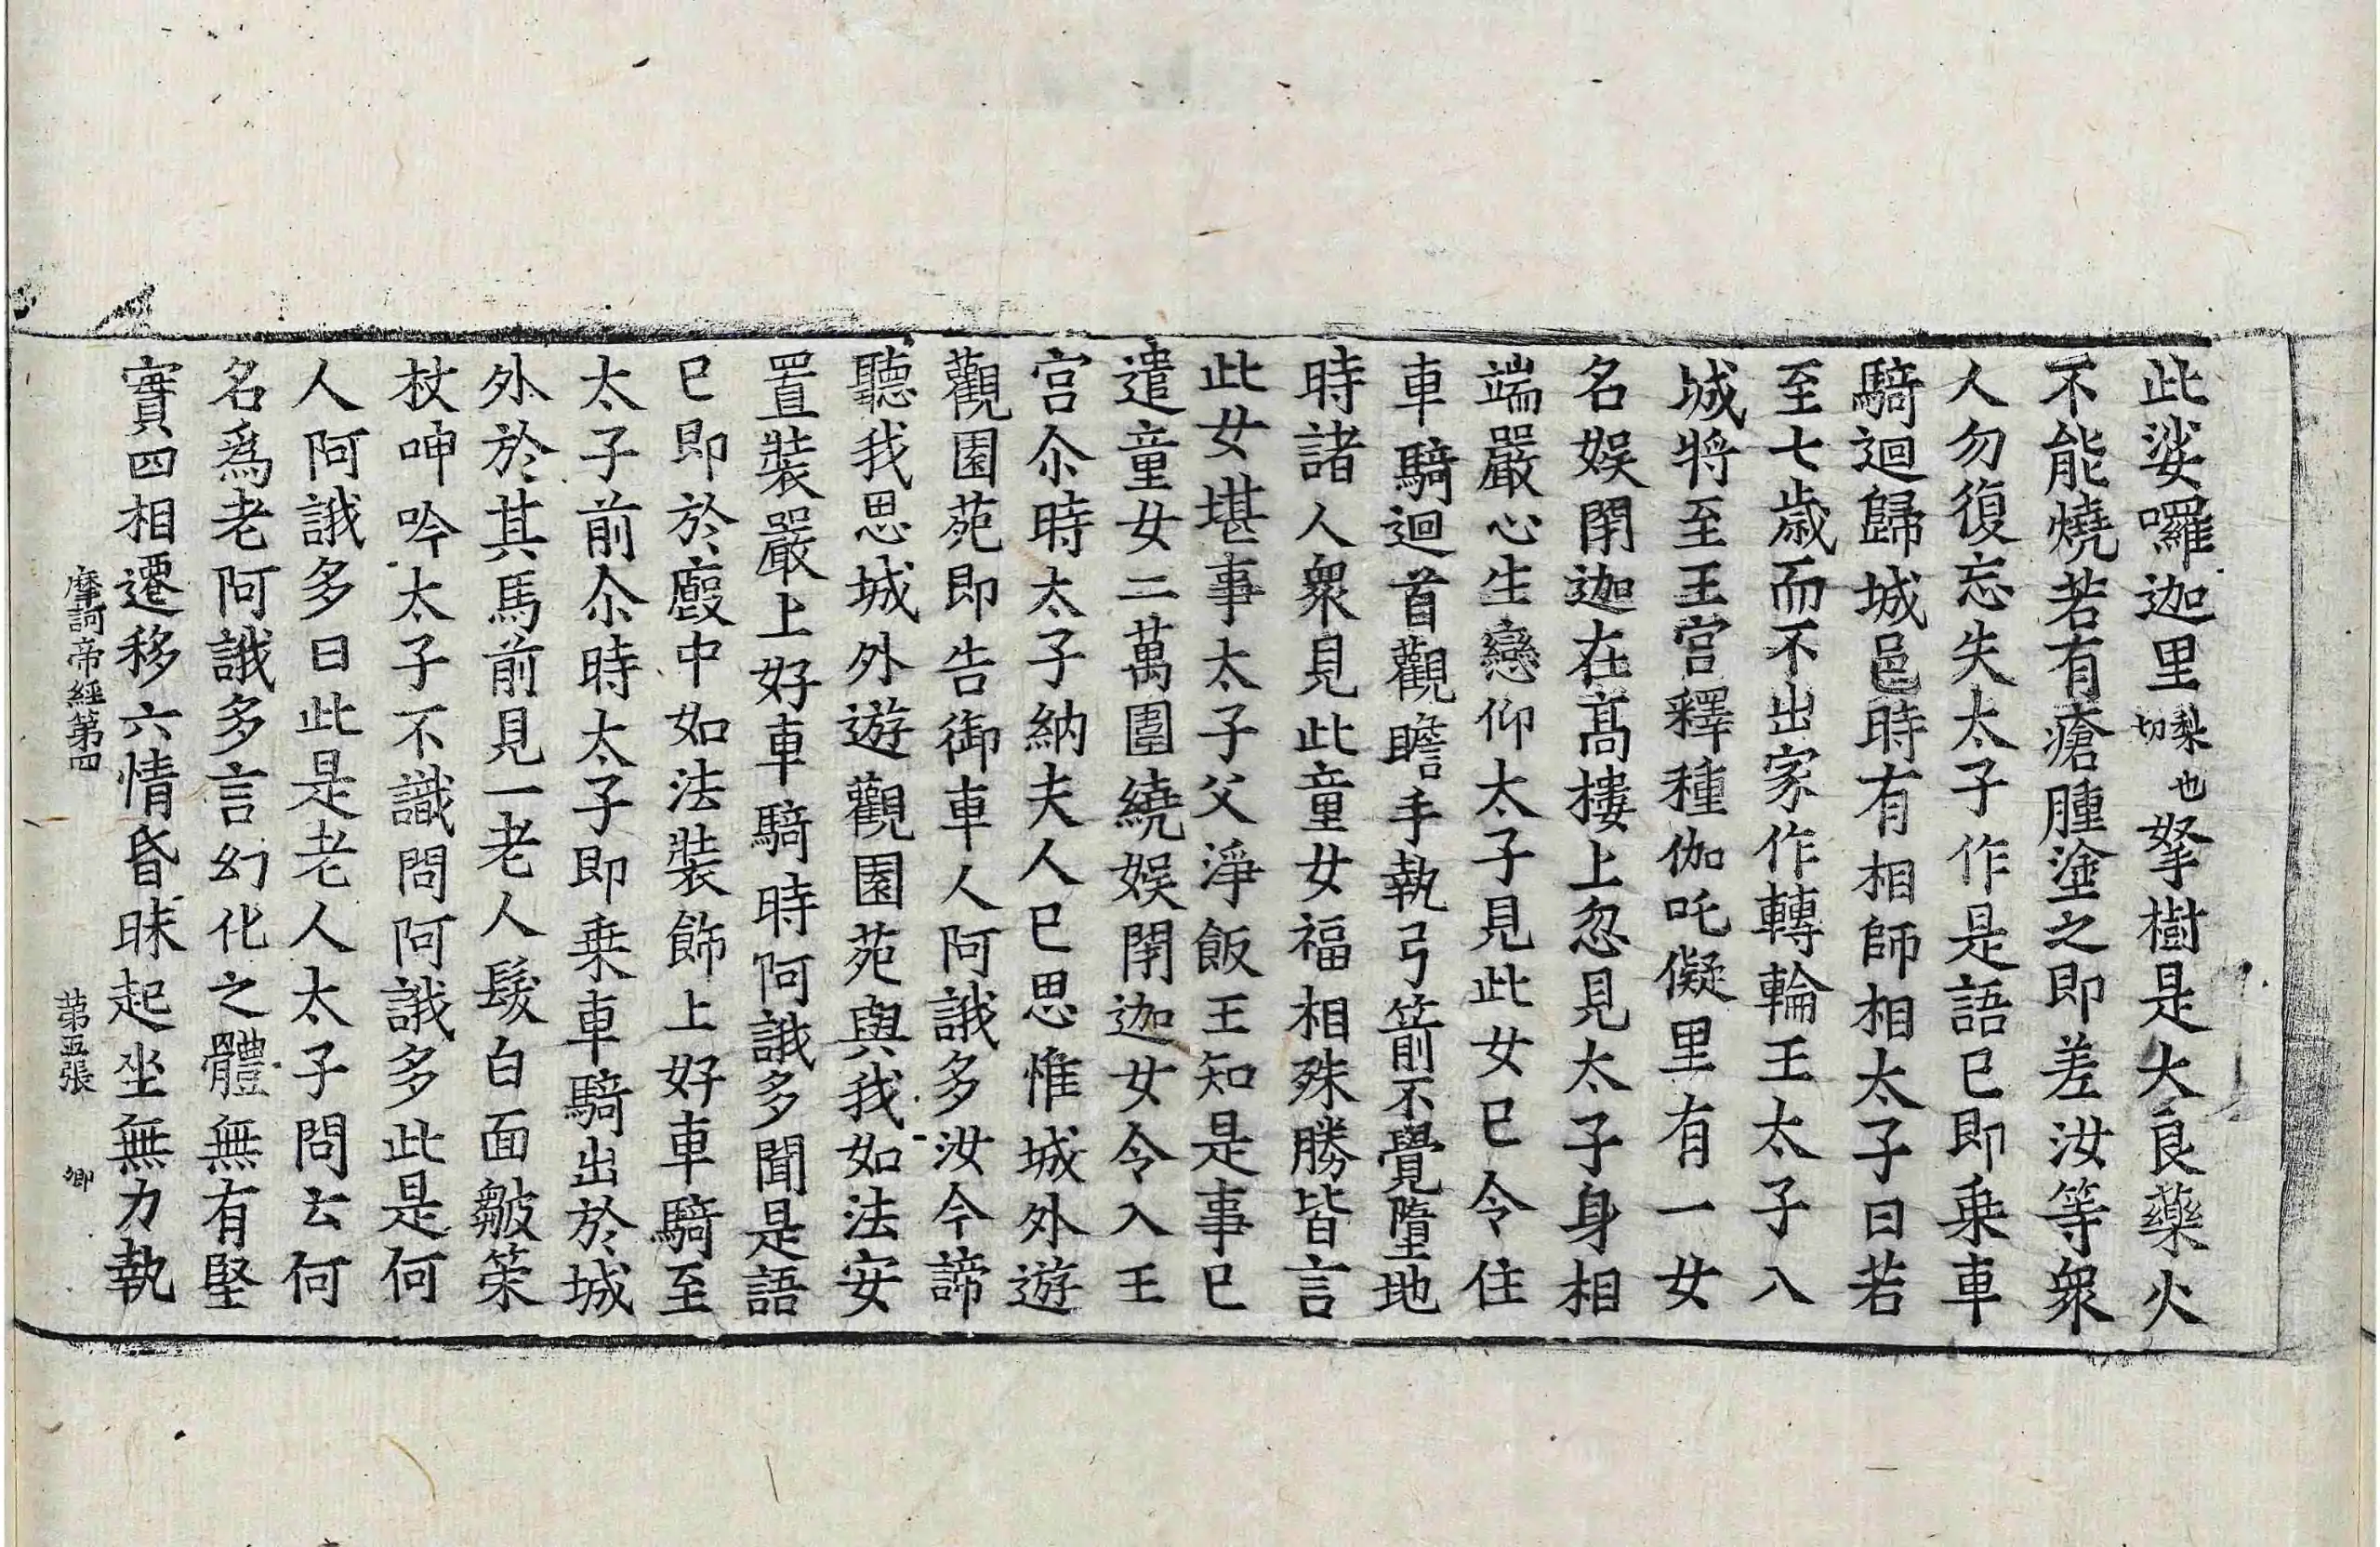 此娑囉迦里梨也切拏樹是大良藥火
不能燒若有瘡腫塗之即差汝等衆
人勿復忘失太子作是語已即乗車
騎迴歸城邑時有相師相太子曰若
至七歲而不出家作轉輪王太子入
城將至王宫釋種伽吒儗里有一女
名娱閉迦在髙樓上忽見太子身相
端嚴心生戀仰太子見此女已令住
車騎迴首觀瞻手執弓箭不覺墮地
時諸人衆見此童女福相殊勝皆言
此女堪事太子父淨飯王知是事已
遣童女二萬圍繞娱閉迦女令入王
宫尒時太子納夫人已思惟城外遊
觀園苑即告御車人阿誐多汝今諦
聽我思城外遊觀園苑與我如法安
置裝嚴上好車騎時阿誐多聞是語
已即於廏中如法裝飾上好車騎至
太子前尒時太子即乗車騎出於城
外於其馬前見一老人髮白面皺策
杖呻吟太子不識問阿誐多此是何
人阿誐多曰此是老人太子問云何
名爲老阿誐多言幻化之體無有堅
實四相遷移六情昏昧起坐無力執
摩訶帝經第四 第五張 卿